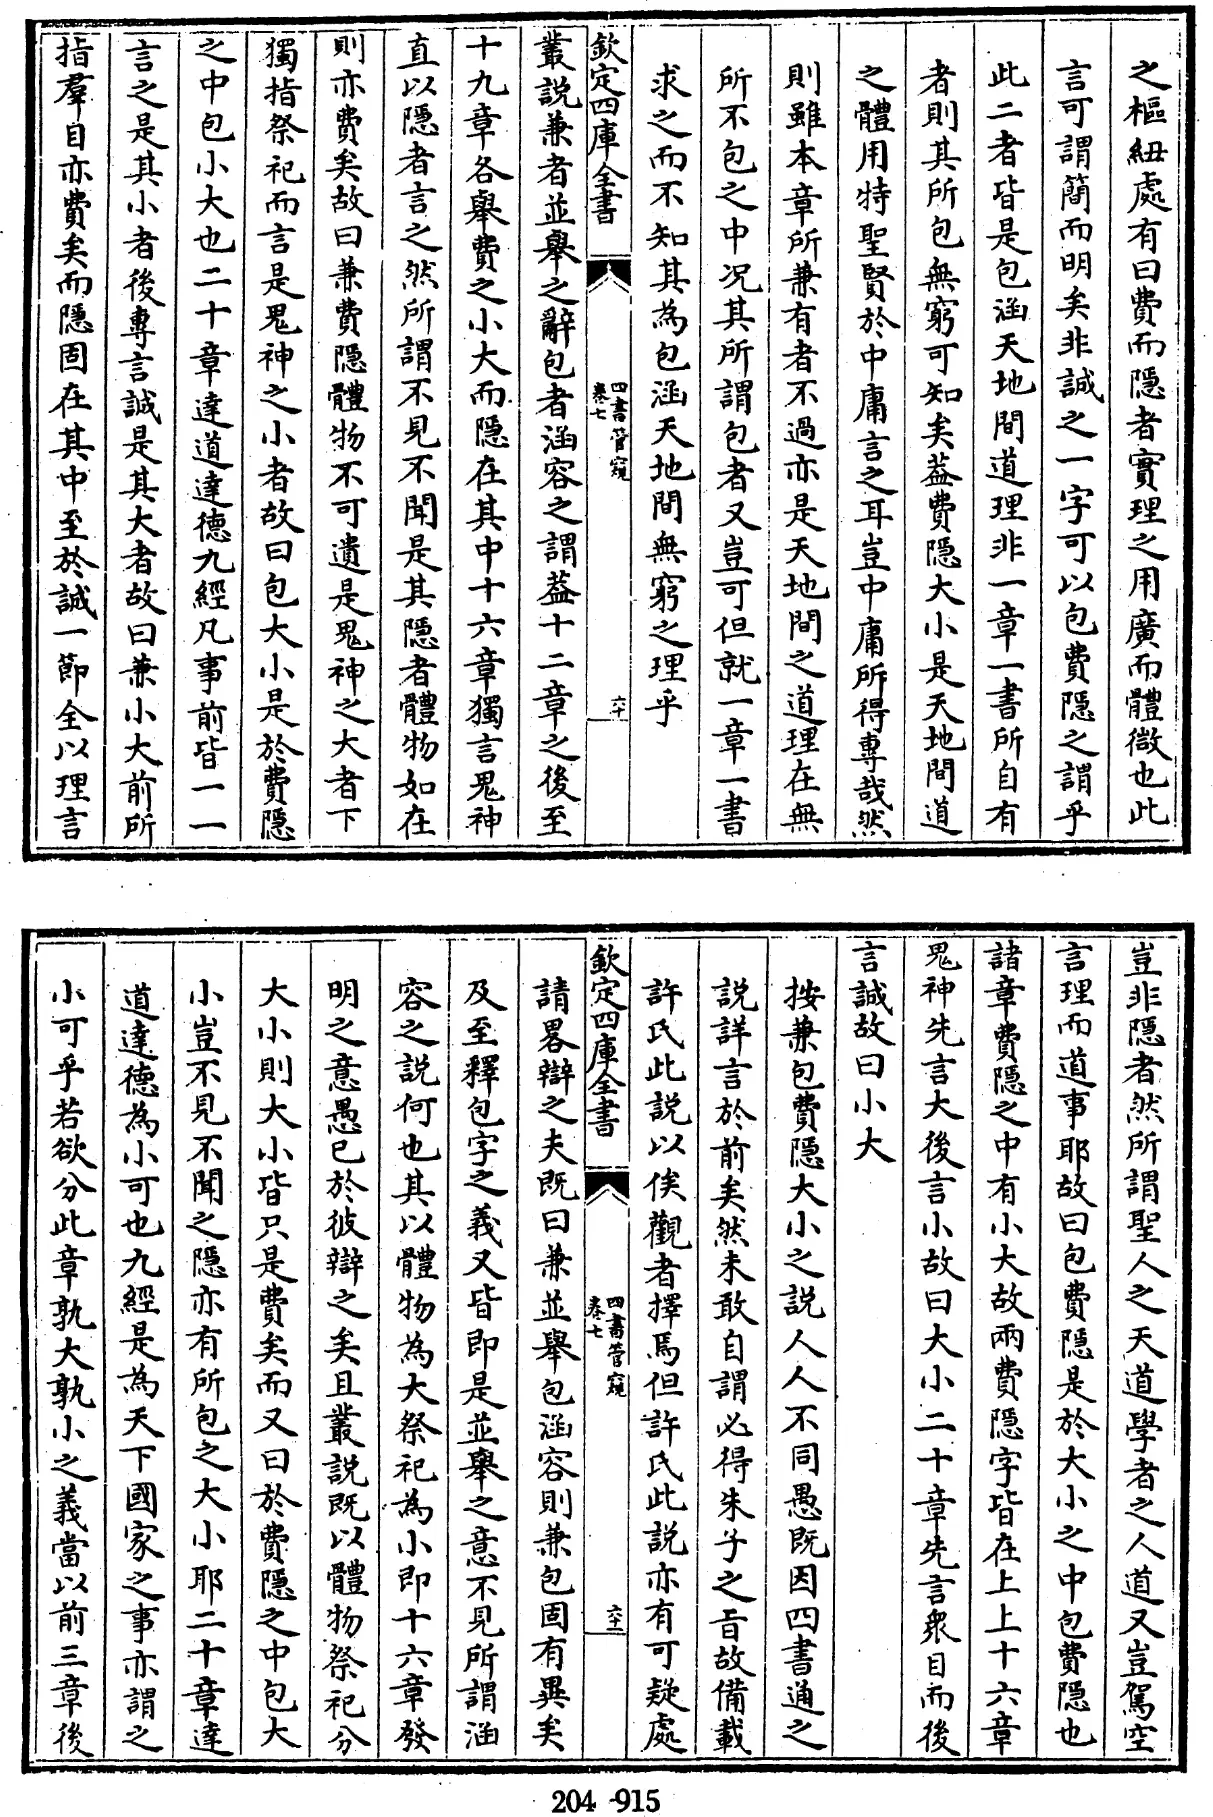 之樞紐處有曰費而隱者實理之用廣而體微也此
言可謂簡而明矣非誠之一字可以包費隱之謂乎
此二者皆是包涵天地間道理非一章一書所自有
者則其所包無窮可知矣葢費隱大小是天地間道
之體用特聖賢於中庸言之耳豈中庸所得專哉然
則雖本章所兼有者不過亦是天地間之道理在無
所不包之中况其所謂包者又豈可但就一章一書
求之而不知其為包涵天地間無窮之理乎
欽定四庫全書
四書管窺
卷七
六十
叢說兼者並舉之辭包者涵容之謂葢十二章之後至
十九章各舉費之小大而隱在其中十六章獨言鬼神
直以隱者言之然所謂不見不聞是其隱者體物如在
則亦費矣故曰兼費隱體物不可遺是鬼神之大者下
獨指祭祀而言是鬼神之小者故曰包大小是於費隱
之中包小大也二十章達道達德九經凡事前皆一一
言之是其小者後專言誠是其大者故曰兼小大前所
指羣目亦費矣而隱固在其中至於誠一節全以理言
豈非隱者然所謂聖人之天道學者之人道又豈駕空
言理而道事耶故曰包費隱是於大小之中包費隱也
諸章費隱之中有小大故兩費隱字皆在上上十六章
鬼神先言大後言小故曰大小二十章先言衆目而後
言誠故曰小大
按兼包費隱大小之說人人不同愚既因四書通之
說詳言於前矣然未敢自謂必得朱子之旨故備載
許氏此說以俟觀者擇焉但許氏此說亦有可疑處
欽定四庫全書
四書管窺
卷七
六十一
請畧辯之夫既曰兼並舉包涵容則兼包固有異矣
及至釋包字之義又皆即是並舉之意不見所謂涵
容之說何也其以體物為大祭祀為小即十六章發
明之意愚已於彼辯之矣且叢說既以體物祭祀分
大小則大小皆只是費矣而又曰於費隱之中包大
小豈不見不聞之隱亦有所包之大小耶二十章達
道達德為小可也九經是為天下國家之事亦謂之
小可乎若欲分此章孰大孰小之義當以前三章後
204-915